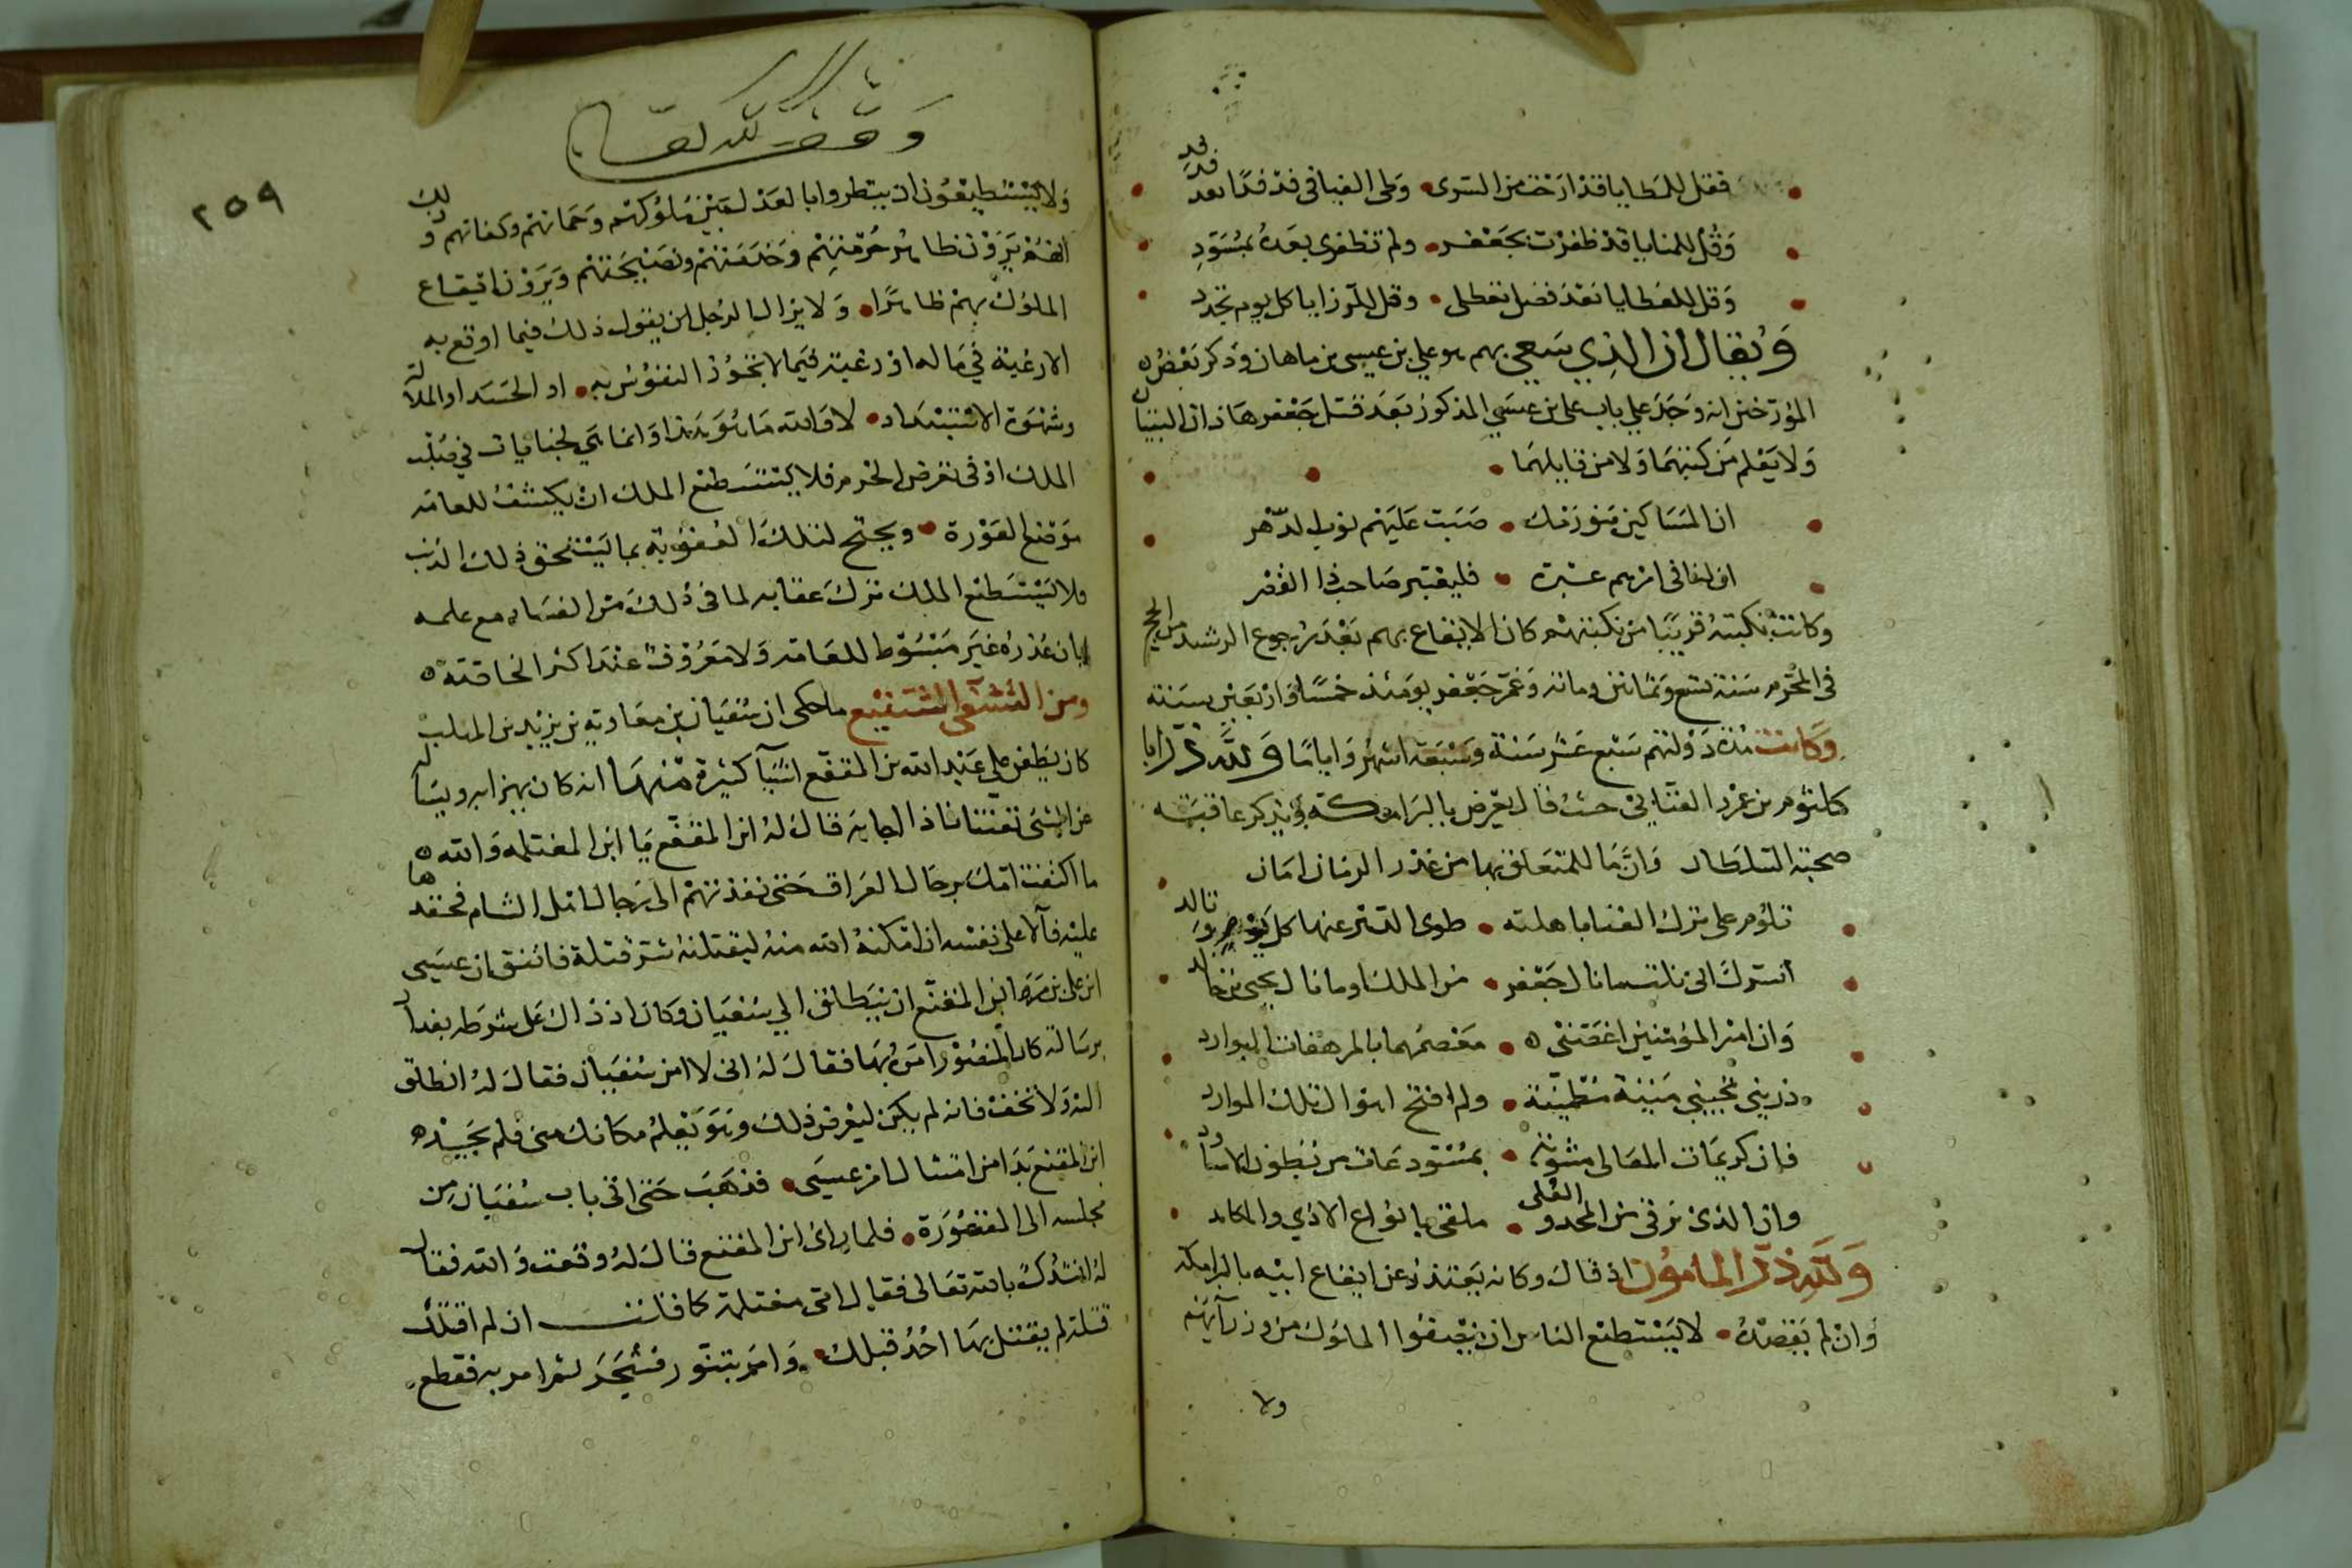 فقل للمطايا قد ارحت من السرى • وطى الفيافى فدفدا بعد فدفد
وقل للمنايا قد ظفرت بجعفر • ولم تظفرى بعده بمسود
وقل للعطايا بعد فضل تعطلى • وقل للرزايا كل يوم تجدد
ويقال ان الذي سعى بهم هو علي بن عيسى بن ماهان وذكر بعض
المؤرخين انه وجد علي باب على بن عيسى المذكور بعد قتل جعفر هاذان البيتان
ولا يعلم من كتبهما ولا من قايلهما •
ان المساكين بنو برمك • صبت عليهم نوب الدهر
ان لنا فى امرهم عبرة • فليعتبر صاحب ذا القصر
وكانت نكبته قريبا من نكبتهم كان الايقاع بهم بعد رجوع الرشيد من الحج
فى المحرم سنة تسع وثمانين ومائة وعمر جعفر يومئذ خمسا واربعين سنة
وكانت مدة دولتهم سبع عشر سنة وسبعة اشهر واياما ولله در ابا
كلثوم بن عمرو العتابى حيث قال يعرض بالبرامكة ويذكر عاقبة
صحبة السلطان وان ما للمتعلق بها من غدر الزمان امان
تلوم على ترك الغنا باهلته • طوى الدهر عنها كل طرف وتالد
انسرك انى نلت ما نال جعفر • من الملك او ما نال يحيى بن خالد
وان امير المؤمنين اغصنى • مغصهما بالمرهفات البوارد
ذرينى تجيبنى ميتة مطمئنة • ولم افتح اهوال تلك الموارد
فان كريمات المعالى مشوبة • بمستودعات من بطون الاساود
وان الذى ترقى من المجد والعلى • ملقى بانواع الاذي والمكايد
ولله در المامون اذ قال وكانه يعتذر عن ايقاع ابيه بالبرامكة
وان لم يقصده • لا يستطيع الناس ان ينصفوا الملوك من وزرآئهم
ولا
وقف لله تعالى
٢٥٩
ولا يستطيعون ان ينظروا بالعدل بين ملوكهم وحماتهم وكفاتهم وذلك
انهم يرون ظاهر حرمتهم وخدمتهم ونصيحتهم ويرون ايقاع
الملوك بهم ظاهرا • ولا يزال الرجل ان يقول ذلك فيما اوقع به
الا رغبة في ماله او رغبة فيما لا تجود النفوس به • او الحسد او الملالة
وشهوة الاستبداد • لا والله ما هو هذا وانما هي لجنايات في صلب
الملك او فى تعرض الحرم فلا يستطيع الملك ان يكشف للعامة
موضع العورة • ويحتج لتلك العقوبة بما يستحق ذلك الذنب
ولا يستطيع الملك ترك عقابه لما فى ذلك من الفساد مع علمه
بان عذره غير مبسوط للعامة ولا معروف عند اكثر الخاصة
ومن التشفى الشنيع ما حكى ان سفيان بن معاوية بن يزيد بن المهلب
كان يطغن على عبد الله بن المقفع اشيآ كثيرة منها انه كان يهزا به ويساله
عن الشئ تعنتا فاذا اجابه قال له ابن المقفع يا ابن المغتلمة والله
ما اكتفت امك برجال العراق حتى نفذتهم الى رجال اهل الشام فحقدها
عليه فآلا على نفسه ان امكنه الله منه ليقتلنه شر قتلة فاتفق ان عيسى
ابن على بن امر ابن المقفع ان ينطلق الى سفيان وكان اذ ذاك على شرطة بغداد
برسالة كان المنصور امر بها فقال له انى لا امن سفيان فقال له انطلق
اليه ولا تخف فانه لم يكن ليعرض ذلك وهو يعلم مكانك منى فلم يجد
ابن المقفع بدا من امتثال امر عيسى • فذهب حتى اتى باب سفيان من
مجلسه الى المقصورة • فلما راى ابن المقفع قال له وقعت والله فقال
له انشدك بالله تعالى فقال امى مغتلمة كما قلت ان لم اقتلك
قتلة لم يقتل بها احد قبلك • وامر بتنور فسجر ثم امر به فقطع